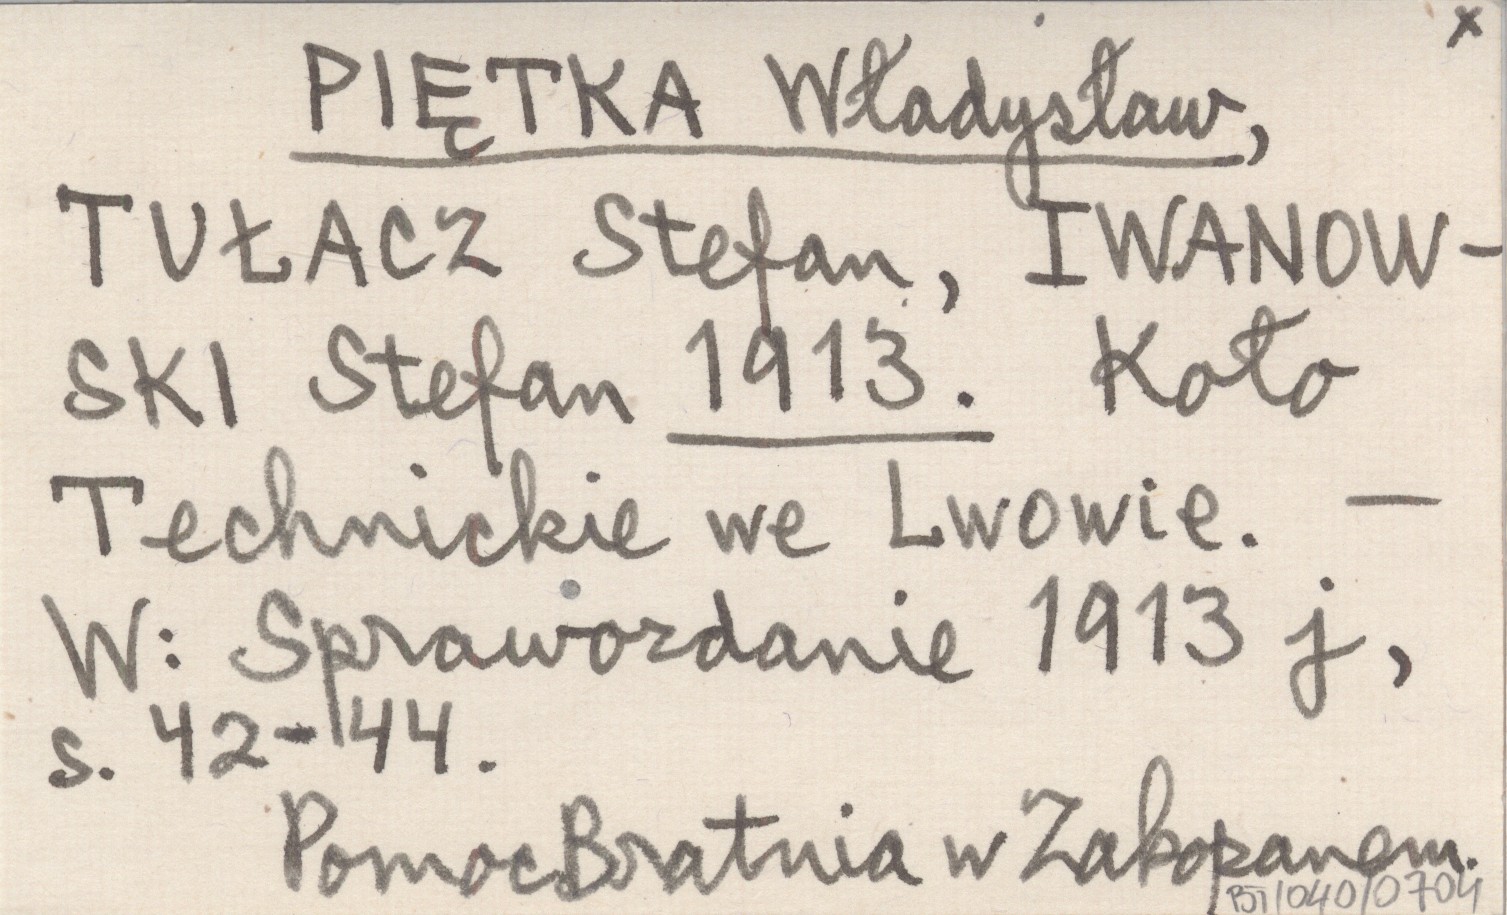 x
PIĘTKA Władysław,
TUŁACZ Stefan, IWANOW-
SKI Stefan 1913. Koło
Technickie we Lwowie. —
W: Sprawozdanie 1913 j,
s. 42-44.
Pomoc Bratnia w Zakopanem.
BJ/040/0704